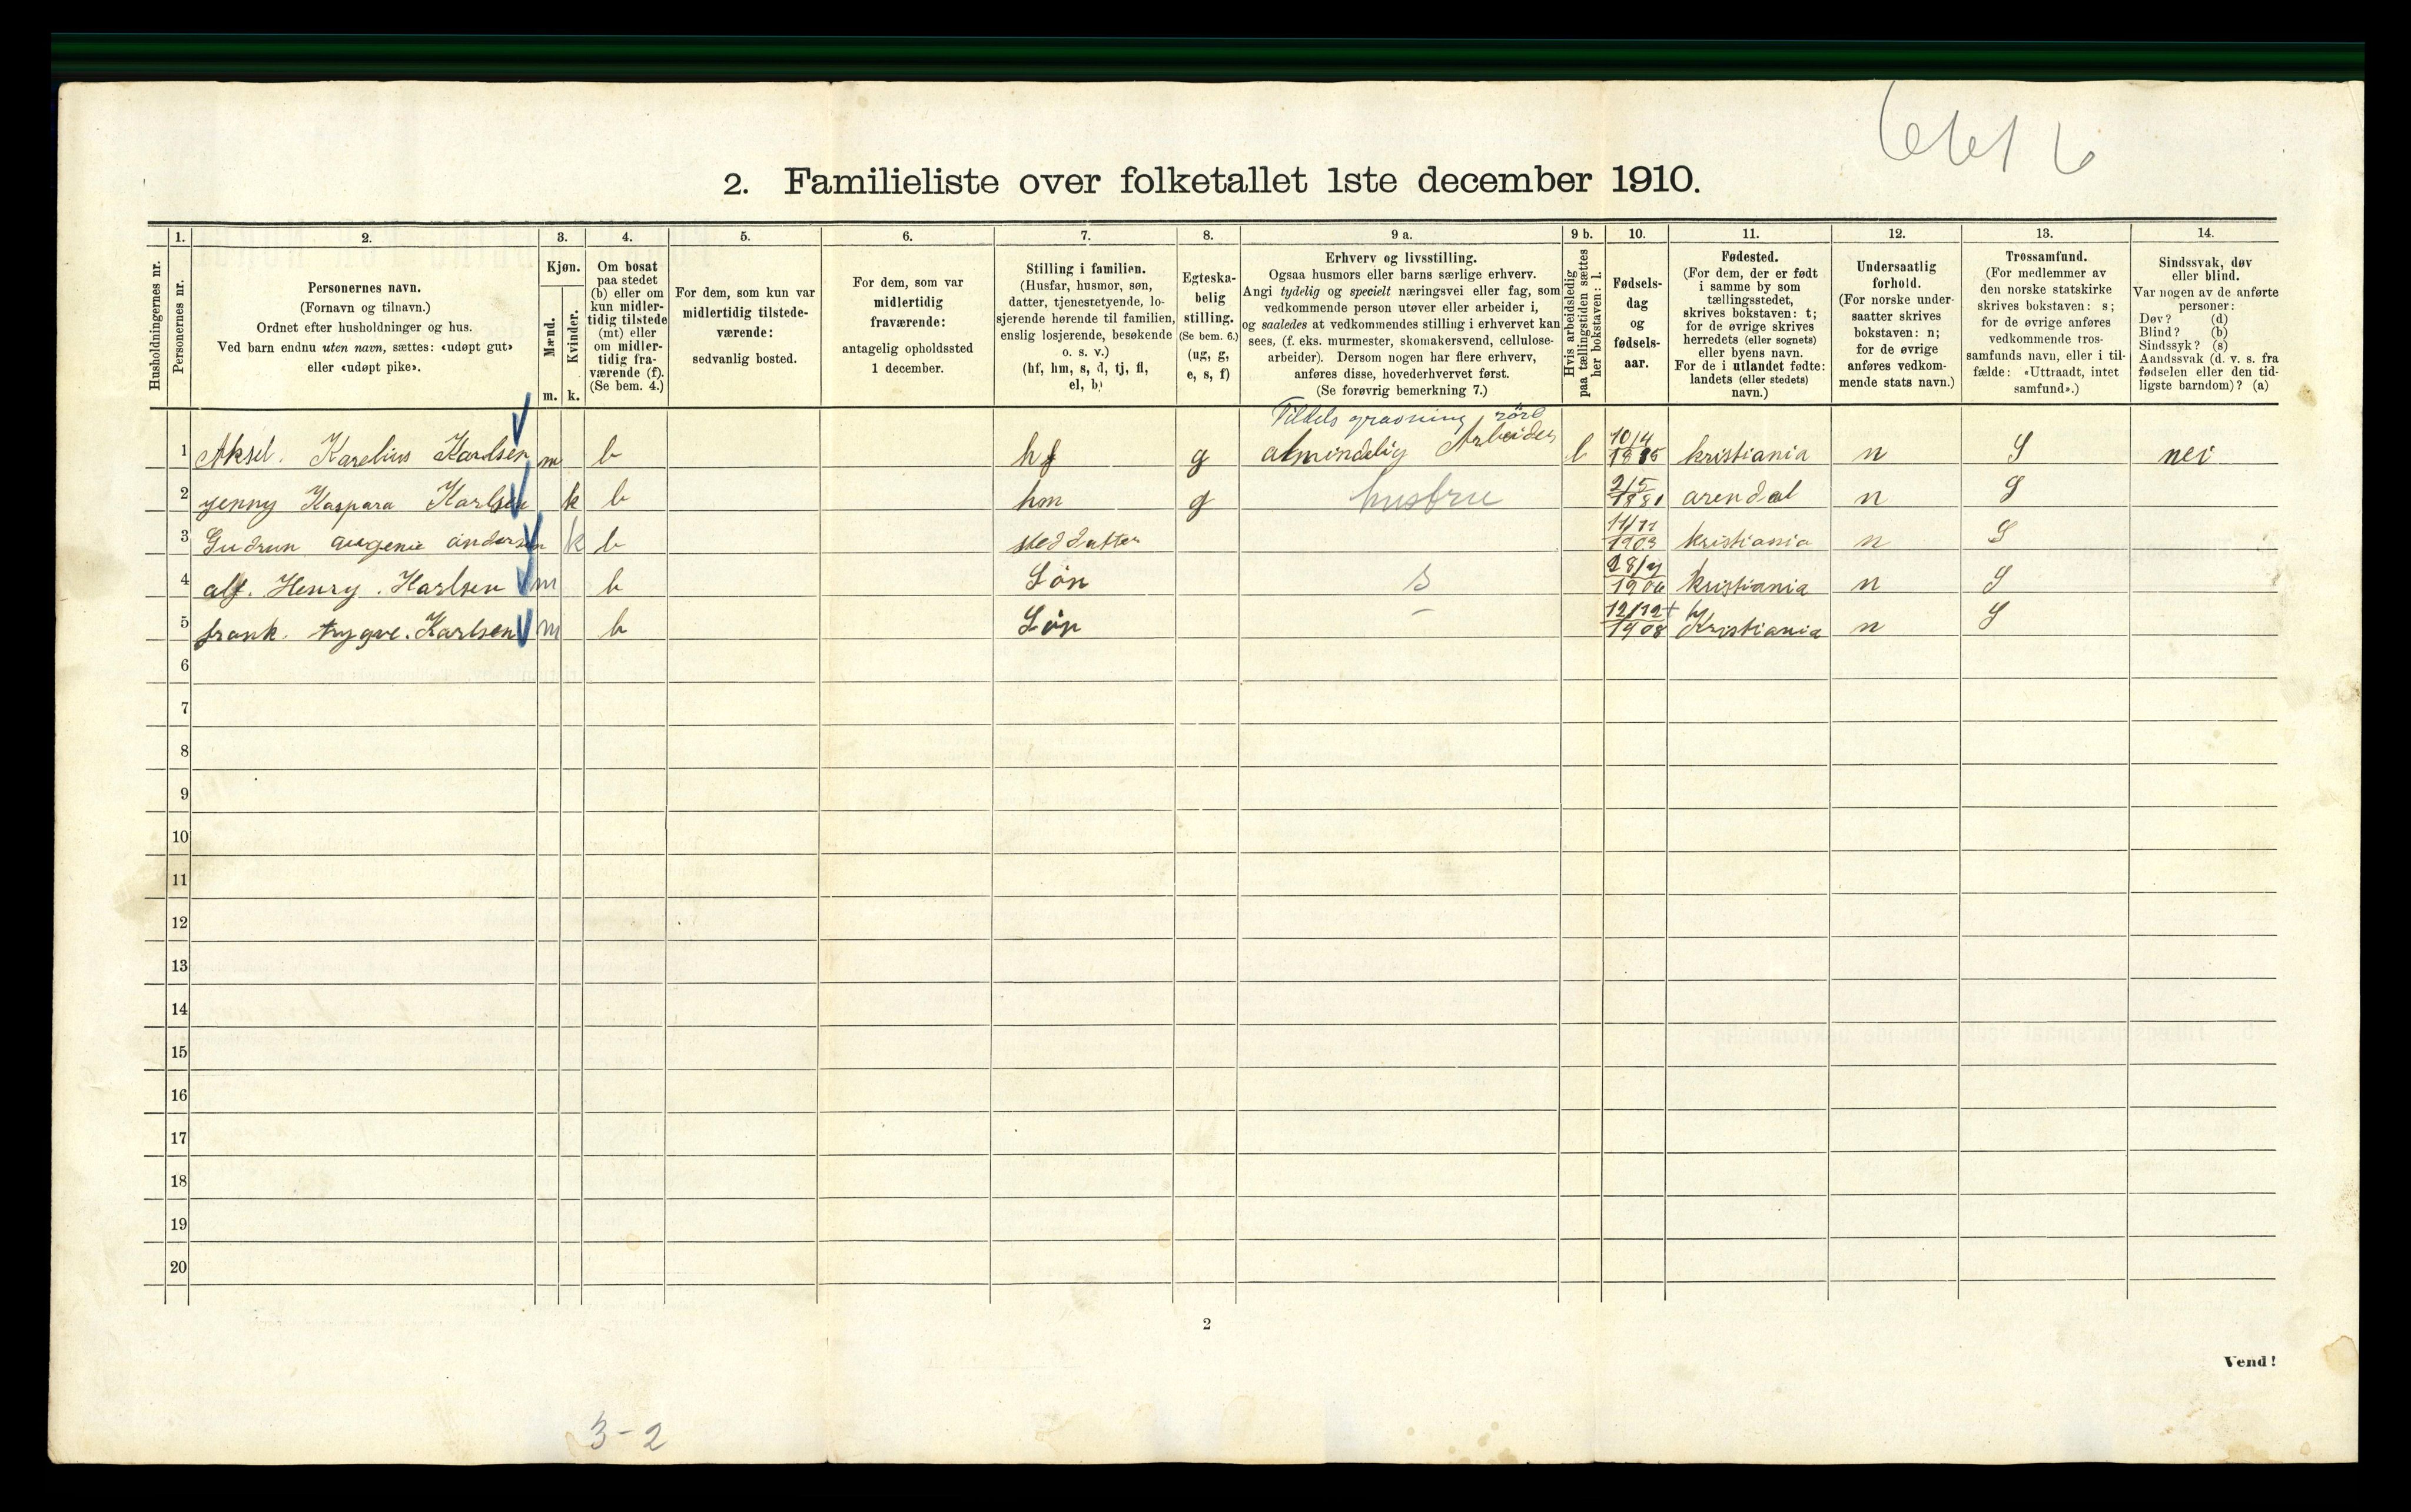 2. Familieliste over folketallet 1ste december 1910.
Husholdningernes nr.
1. Personernes nr.
2. Personernes navn.
(Fornavn og tilnavn.)
Ordnet efter husholdninger og hus.
Ved barn endnu uten navn, sættes: «udøpt gut»
eller «udøpt pike».
3. Kjøn.
Mænd. m.
Kvinder. k.
4. Om bosat
paa stedet
(b) eller om
kun midler-
tidig tilstede
(mt) eller
om midler-
tidig fra-
værende (f).
(Se bem. 4.)
5. For dem, som kun var
midlertidig tilstede-
værende:
sedvanlig bosted.
6. For dem, som var
midlertidig
fraværende:
antagelig opholdssted
1 december.
7. Stilling i familien.
(Husfar, husmor, søn,
datter, tjenestetyende, lo-
sjerende hørende til familien,
enslig losjerende, besøkende
o. s. v.)
(hf, hm, s, d, tj, fl,
el, b)
8. Egteska-
belig
stilling.
(Se bem. 6.)
(ug, g,
e, s, f)
9 a. Erhverv og livsstilling.
Ogsaa husmors eller barns særlige erhverv.
Angi tydelig og specielt næringsvei eller fag, som
vedkommende person utøver eller arbeider i,
og saaledes at vedkommendes stilling i erhvervet kan
sees, (f. eks. murmester, skomakersvend, cellulose-
arbeider). Dersom nogen har flere erhverv,
anføres disse, hovederhvervet først.
(Se forøvrig bemerkning 7.)
9 b. Hvis arbeidsledig
paa tællingstiden sættes
her bokstaven: l.
10. Fødsels-
dag
og
fødsels-
aar.
11. Fødested.
(For dem, der er født
i samme by som
tællingsstedet,
skrives bokstaven: t;
for de øvrige skrives
herredets (eller sognets)
eller byens navn.
For de i utlandet fødte:
landets (eller stedets)
navn.)
12. Undersaatlig
forhold.
(For norske under-
saatter skrives
bokstaven: n;
for de øvrige
anføres vedkom-
mende stats navn.)
13. Trossamfund.
(For medlemmer av
den norske statskirke
skrives bokstaven: s;
for de øvrige anføres
vedkommende tros-
samfunds navn, eller i til-
fælde: «Uttraadt, intet
samfund».)
14. Sindssvak, døv
eller blind.
Var nogen av de anførte
personer:
Døv? (d)
Blind? (b)
Sindssyk? (s)
Aandssvak (d. v. s. fra
fødselen eller den tid-
ligste barndom)? (a)
Tildels gravning
1 Aksel. Karelius Karlsen m b hf g almindelig Arbeider l 10/4 kristiania n S nei
2 yenny Kaspara Karlsen k b hm g hustru 2/5 1881 arendal n S
3 Gudrun augenie andersen k b steddatter 11/11 1903 kristiania n S
4 alf. Henry. Karlsen m b Søn s kristiania n S
5 frank. trygve. Karlsen m b Søn – 12/12 1908 Kristiania n S
6
7
8
9
10
11
12
13
14
15
16
17
18
19
20
2
Vend!
3-2